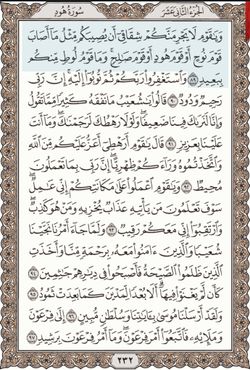 الجزء الثاني عشر سورة هود
وَيَٰقَوْمِ لَا يَجْرِمَنَّكُمْ شِقَاقِىٓ أَن يُصِيبَكُم مِّثْلُ مَآ أَصَابَ
قَوْمَ نُوحٍ أَوْ قَوْمَ هُودٍ أَوْ قَوْمَ صَٰلِحٍ ۚ وَمَا قَوْمُ لُوطٍ مِّنكُم
بِبَعِيدٍ ٨٩ وَٱسْتَغْفِرُوا۟ رَبَّكُمْ ثُمَّ تُوبُوٓا۟ إِلَيْهِ ۚ إِنَّ رَبِّى
رَحِيمٌ وَدُودٌ ٩٠ قَالُوا۟ يَٰشُعَيْبُ مَا نَفْقَهُ كَثِيرًا مِّمَّا تَقُولُ
وَإِنَّا لَنَرَىٰكَ فِينَا ضَعِيفًا ۖ وَلَوْلَا رَهْطُكَ لَرَجَمْنَٰكَ ۖ وَمَآ أَنتَ
عَلَيْنَا بِعَزِيزٍ ٩١ قَالَ يَٰقَوْمِ أَرَهْطِىٓ أَعَزُّ عَلَيْكُم مِّنَ ٱللَّهِ
وَٱتَّخَذْتُمُوهُ وَرَآءَكُمْ ظِهْرِيًّا ۖ إِنَّ رَبِّى بِمَا تَعْمَلُونَ
مُحِيطٌ ٩٢ وَيَٰقَوْمِ ٱعْمَلُوا۟ عَلَىٰ مَكَانَتِكُمْ إِنِّى عَٰمِلٌ ۖ
سَوْفَ تَعْلَمُونَ مَن يَأْتِيهِ عَذَابٌ يُخْزِيهِ وَمَنْ هُوَ كَٰذِبٌ ۖ
وَٱرْتَقِبُوٓا۟ إِنِّى مَعَكُمْ رَقِيبٌ ٩٣ وَلَمَّا جَآءَ أَمْرُنَا نَجَّيْنَا
شُعَيْبًا وَٱلَّذِينَ ءَامَنُوا۟ مَعَهُۥ بِرَحْمَةٍ مِّنَّا وَأَخَذَتِ
ٱلَّذِينَ ظَلَمُوا۟ ٱلصَّيْحَةُ فَأَصْبَحُوا۟ فِى دِيَٰرِهِمْ جَٰثِمِينَ ٩٤
كَأَن لَّمْ يَغْنَوْا۟ فِيهَآ ۗ أَلَا بُعْدًا لِّمَدْيَنَ كَمَا بَعِدَتْ ثَمُودُ ٩٥
وَلَقَدْ أَرْسَلْنَا مُوسَىٰ بِـَٔايَٰتِنَا وَسُلْطَٰنٍ مُّبِينٍ ٩٦ إِلَىٰ فِرْعَوْنَ
وَمَلَإِي۟هِۦ فَٱتَّبَعُوٓا۟ أَمْرَ فِرْعَوْنَ ۖ وَمَآ أَمْرُ فِرْعَوْنَ بِرَشِيدٍ ٩٧
٢٣٢